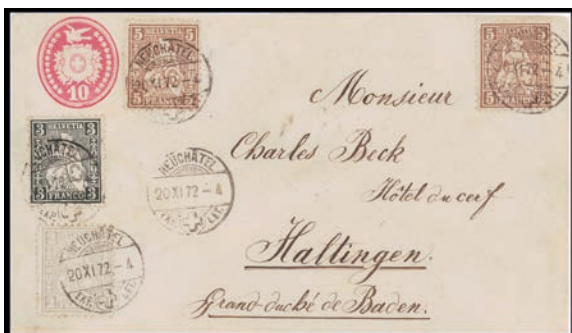 10
5 HELVETIA 5
5 FRANCO 5
NEUCHÂTEL
20 XI 72 – 4
5 HELVETIA 5
5 FRANCO 5
XI 72 – 4
3 HELVETIA 3
3 FRANCO 3
NEUCHÂTEL
NEUCHÂTEL
20 XI 72 – 4
EXP. LET.
NEUCHÂTEL
20 XI 72 – 4
EXP. LET.
Monsieur
Charles Beck
Hôtel du cerf
Haltingen.
Grand-duché de Baden.